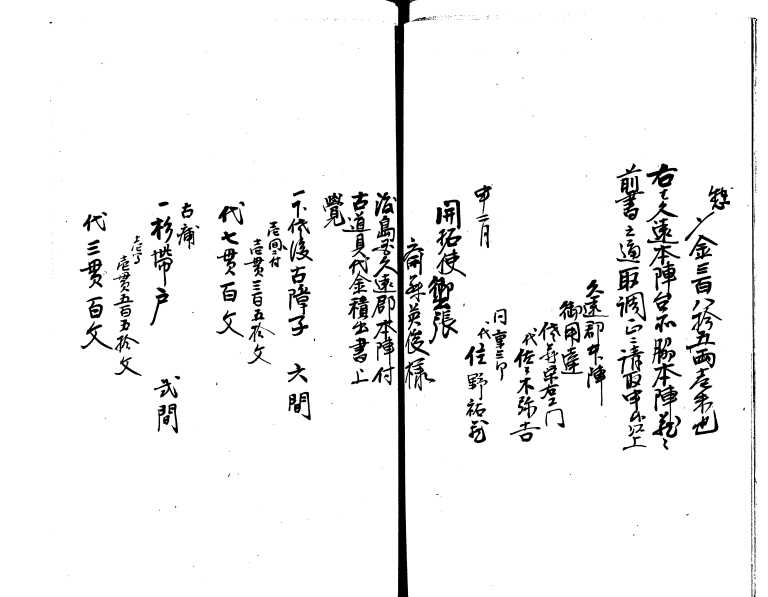 惣〆金三百八拾五両壱朱也
右者久遠本陣台所脇本陣
前書之通取調正ニ請取申候以上
久遠郡本陣
御用達
佐藤栄右衛門
代佐々木弥吉
同重三郎
代住野祐蔵
申二月
開拓使御出張
斎藤英俊様
後島累久遠郡本陣付
古道具代金積出書上
覚
一下代後古障子 六間
壱間ニ付
壱貫三百五拾文
代七貫百文
古補
一杉帯戸 弐間
壱間ニ付
壱貫五百五拾文
代三貫百文